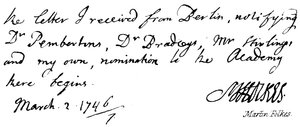 the letter I received from Berlin, notifying
Dr Pembertons, Dr Bradleys, Mr Stirlings
and my own, nomination to the Academy
there begins.
March. 2. 1746/7
MFolkes.
Martin Folkes.